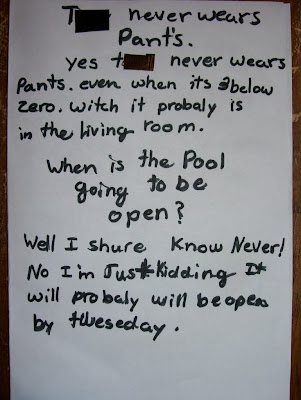 T never wears
Pant's.
yes t never wears
Pants. even when its 3 below
zero. witch it probaly is
in the living room.
When is the Pool
going to be
open?
Well I shure Know Never!
No I'm Just Kidding It
will probaly will be open
by tuweseday.